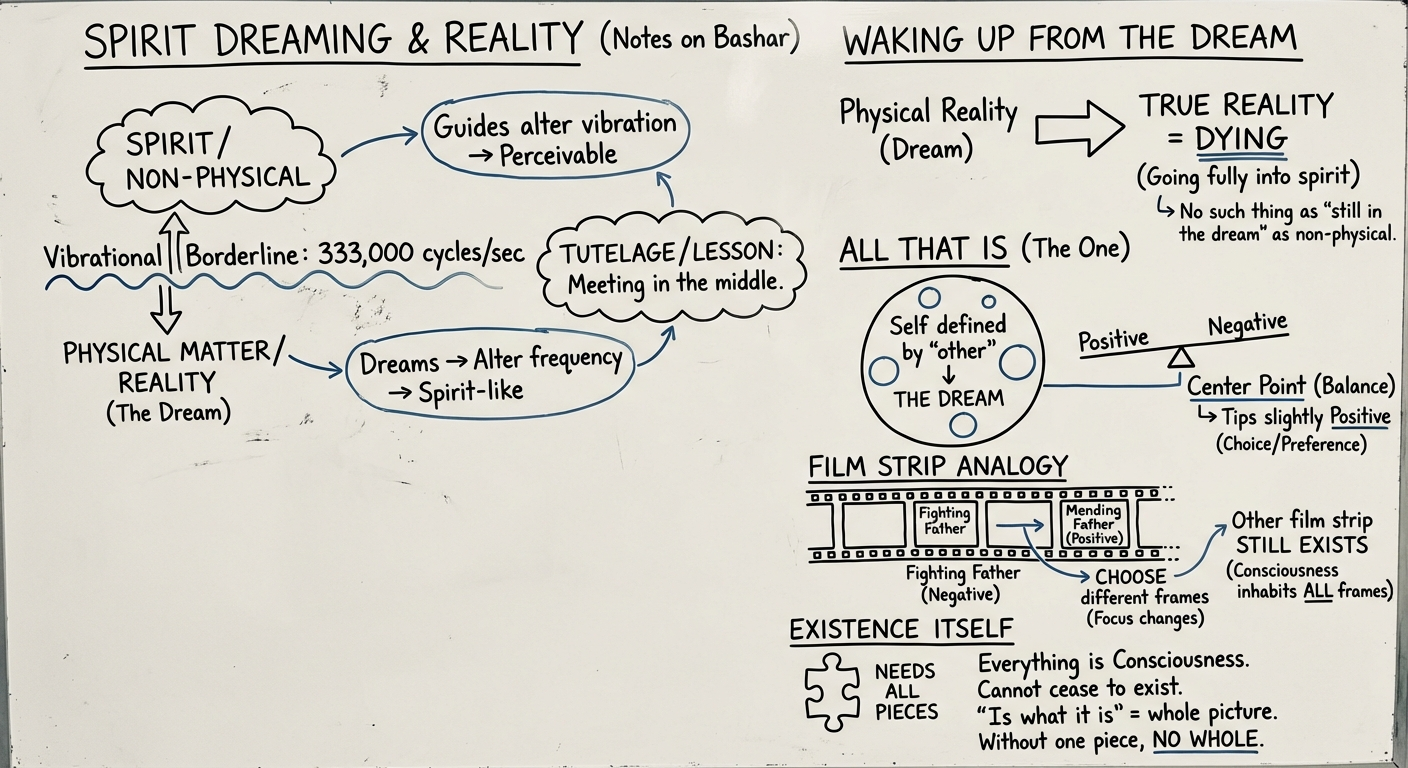 SPIRIT DREAMING & REALITY (Notes on Bashar)
SPIRIT/
NON-PHYSICAL
Guides alter vibration
→ Perceivable
Vibrational Borderline: 333,000 cycles/sec
TUTELAGE/LESSON:
Meeting in the middle.
PHYSICAL MATTER/
REALITY
(The Dream)
Dreams → Alter frequency
→ Spirit-like
WAKING UP FROM THE DREAM
Physical Reality
(Dream)
TRUE REALITY
= DYING
(Going fully into spirit)
↳ No such thing as "still in
the dream" as non-physical.
ALL THAT IS (The One)
Self defined
by "other"
↓
THE DREAM
Positive
Negative
Center Point (Balance)
↳ Tips slightly Positive
(Choice/Preference)
FILM STRIP ANALOGY
Fighting
Father
Mending
Father
(Positive)
Fighting Father
(Negative)
CHOOSE
different frames
(Focus changes)
Other film strip
STILL EXISTS
(Consciousness
inhabits ALL frames)
EXISTENCE ITSELF
NEEDS
ALL
PIECES
Everything is Consciousness.
Cannot cease to exist.
"Is what it is" = whole picture.
Without one piece, NO WHOLE.